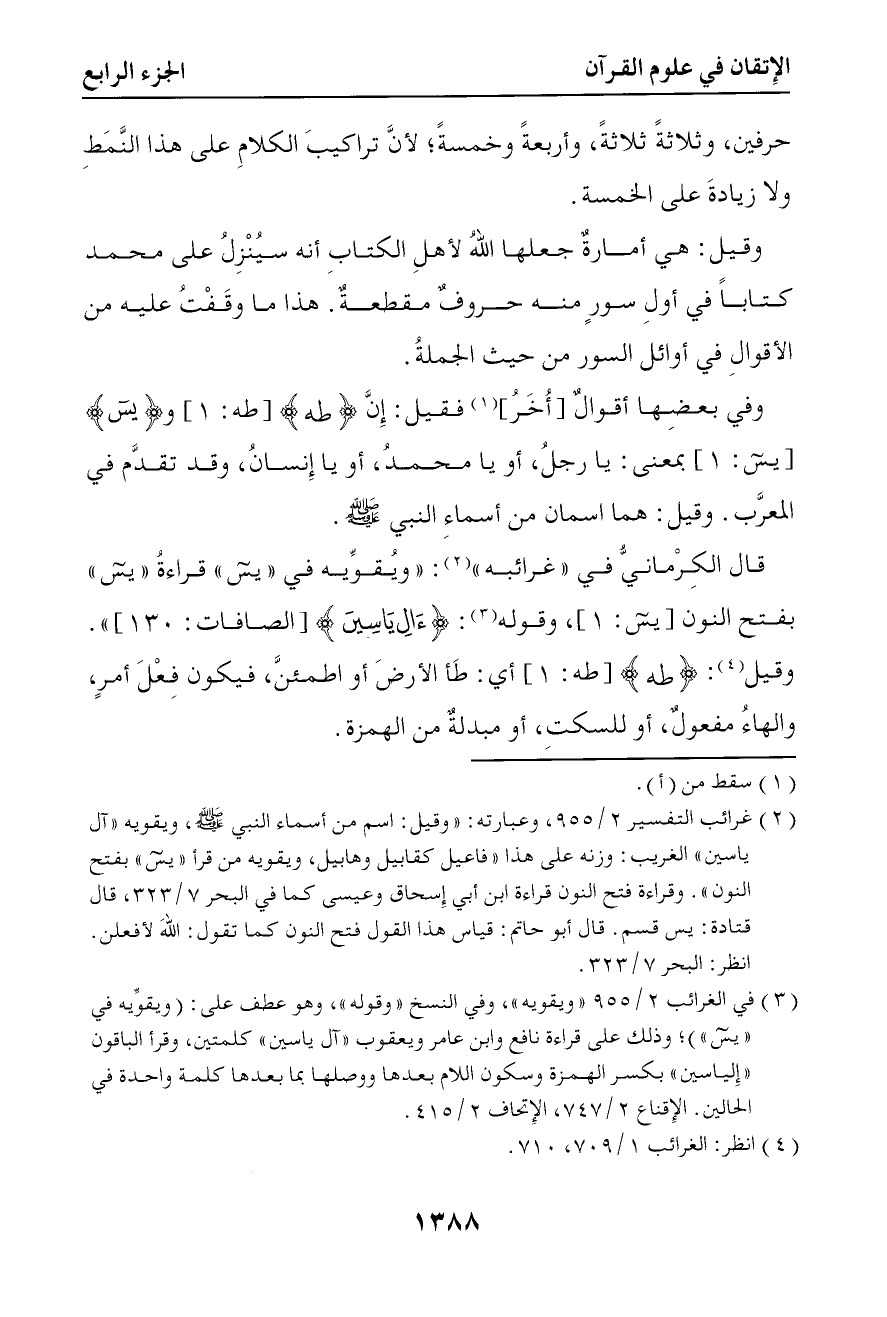 الإتقان في علوم القرآن
الجزء الرابع
حرفين، وثلاثةً ثلاثةً، وأربعةً وخمسةً؛ لأنَّ تراكيبَ الكلامِ على هذا النَّمَطِ
ولا زيادةَ على الخمسة.
وقيل: هي أمارةٌ جعلها اللهُ لأهلِ الكتابِ أنه سيُنْزِلُ على محمد
كتاباً في أولِ سورٍ منه حروفٌ مقطعةٌ. هذا ما وقَفْتُ عليه من
الأقوالِ في أوائل السور من حيث الجملةُ.
وفي بعضِها أقوالٌ [أُخَرُ](١) فقيل: إنَّ ﴿طه﴾ [طه: ١] و﴿يسٓ﴾
[يسٓ: ١] بمعنى: يا رجلُ، أو يا محمدُ، أو يا إنسانُ، وقد تقدَّم في
المعرَّب. وقيل: هما اسمان من أسماءِ النبي ﷺ.
قال الكِرْمانيُّ في «غرائبه»(٢): «ويُقوِّيه في «يسٓ» قراءةُ «يسٓ»
بفتح النون [يسٓ: ١]، وقوله(٣): ﴿ءَالِ يَاسِينَ﴾ [الصافات: ١٣٠]».
وقيل(٤): ﴿طه﴾ [طه: ١] أي: طَأ الأرضَ أو اطمئنَّ، فيكون فِعْلَ أمرٍ،
والهاءُ مفعولٌ، أو للسكتِ، أو مبدلةٌ من الهمزة.
(١) سقط من (أ).
(٢) غرائب التفسير ٢/ ٩٥٥، وعبارته: «وقيل: اسم من أسماء النبي ﷺ، ويقويه «آل
ياسين» الغريب: وزنه على هذا «فاعيل كقابيل وهابيل، ويقويه من قرأ «يسٓ» بفتح
النون». وقراءة فتح النون قراءة ابن أبي إسحاق وعيسى كما في البحر ٧/ ٣٢٣، قال
قتادة: يس قسم. قال أبو حاتم: قياس هذا القول فتح النون كما تقول: اللهَ لأفعلن.
انظر: البحر ٧/ ٣٢٣.
(٣) في الغرائب ٢/ ٩٥٥ «ويقويه»، وفي النسخ «وقوله»، وهو عطف على: (ويقوِّيه في
«يسٓ»)؛ وذلك على قراءة نافع وابن عامر ويعقوب «آل ياسين» كلمتين، وقرأ الباقون
«إلياسين» بكسر الهمزة وسكون اللام بعدها ووصلها بما بعدها كلمة واحدة في
الحالين. الإقناع ٢/ ٧٤٧، الإتحاف ٢/ ٤١٥.
(٤) انظر: الغرائب ١/ ٧٠٩، ٧١٠.
١٣٨٨